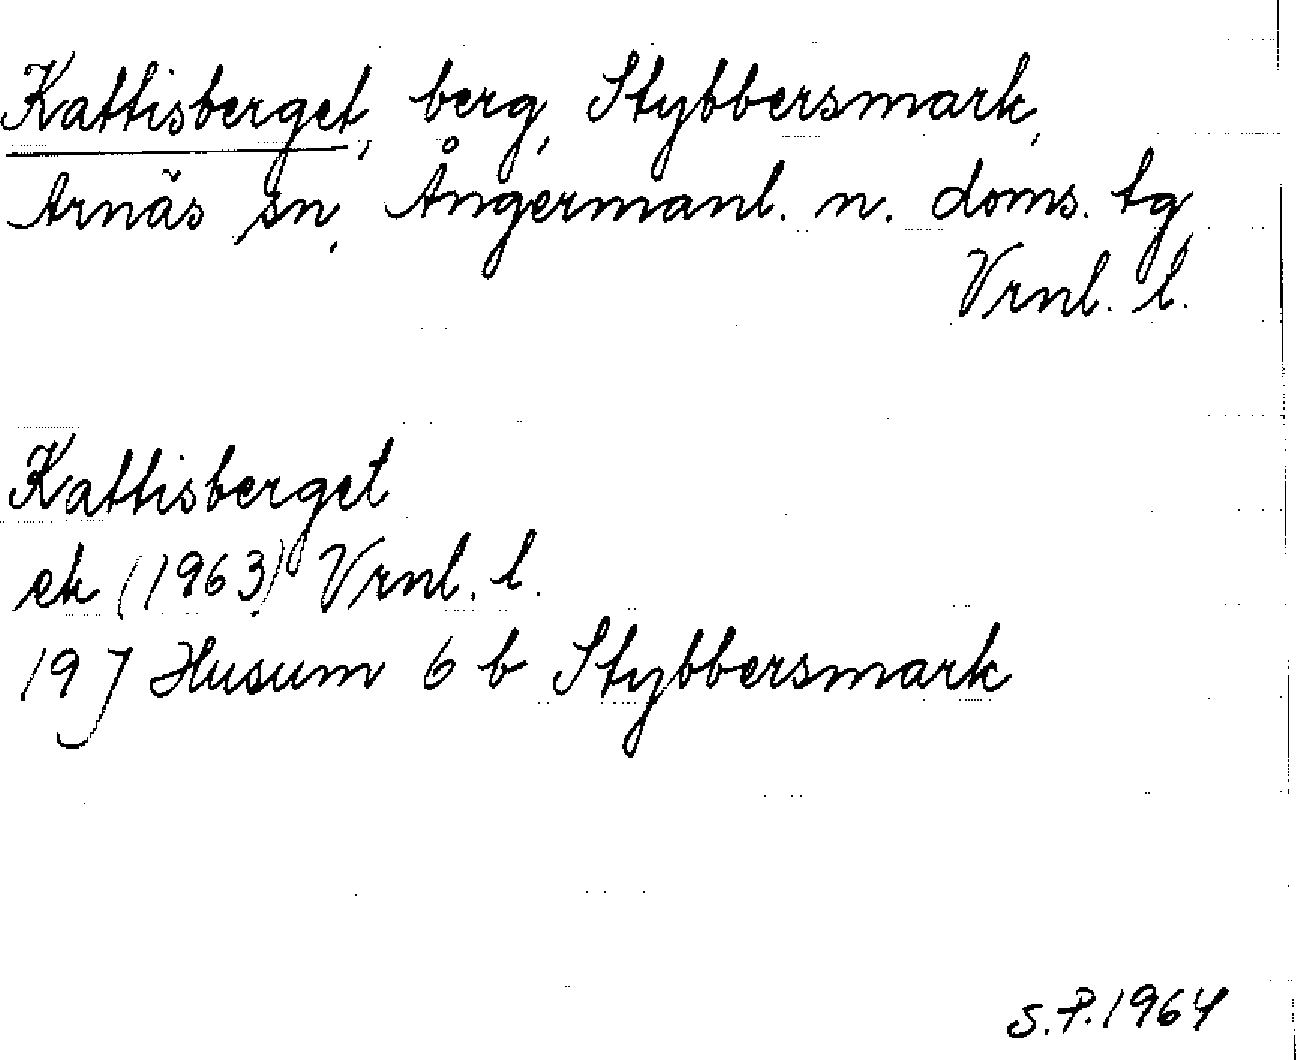 Kattisberget, berg, Stybbersmark,
Arnäs sn, Ångermanl. n. doms. tg,
Vrnl. l.
Kattisberget
ek (1963) Vrnl. l.
19 J Husum 6 b Stybbersmark
S.P. 1964